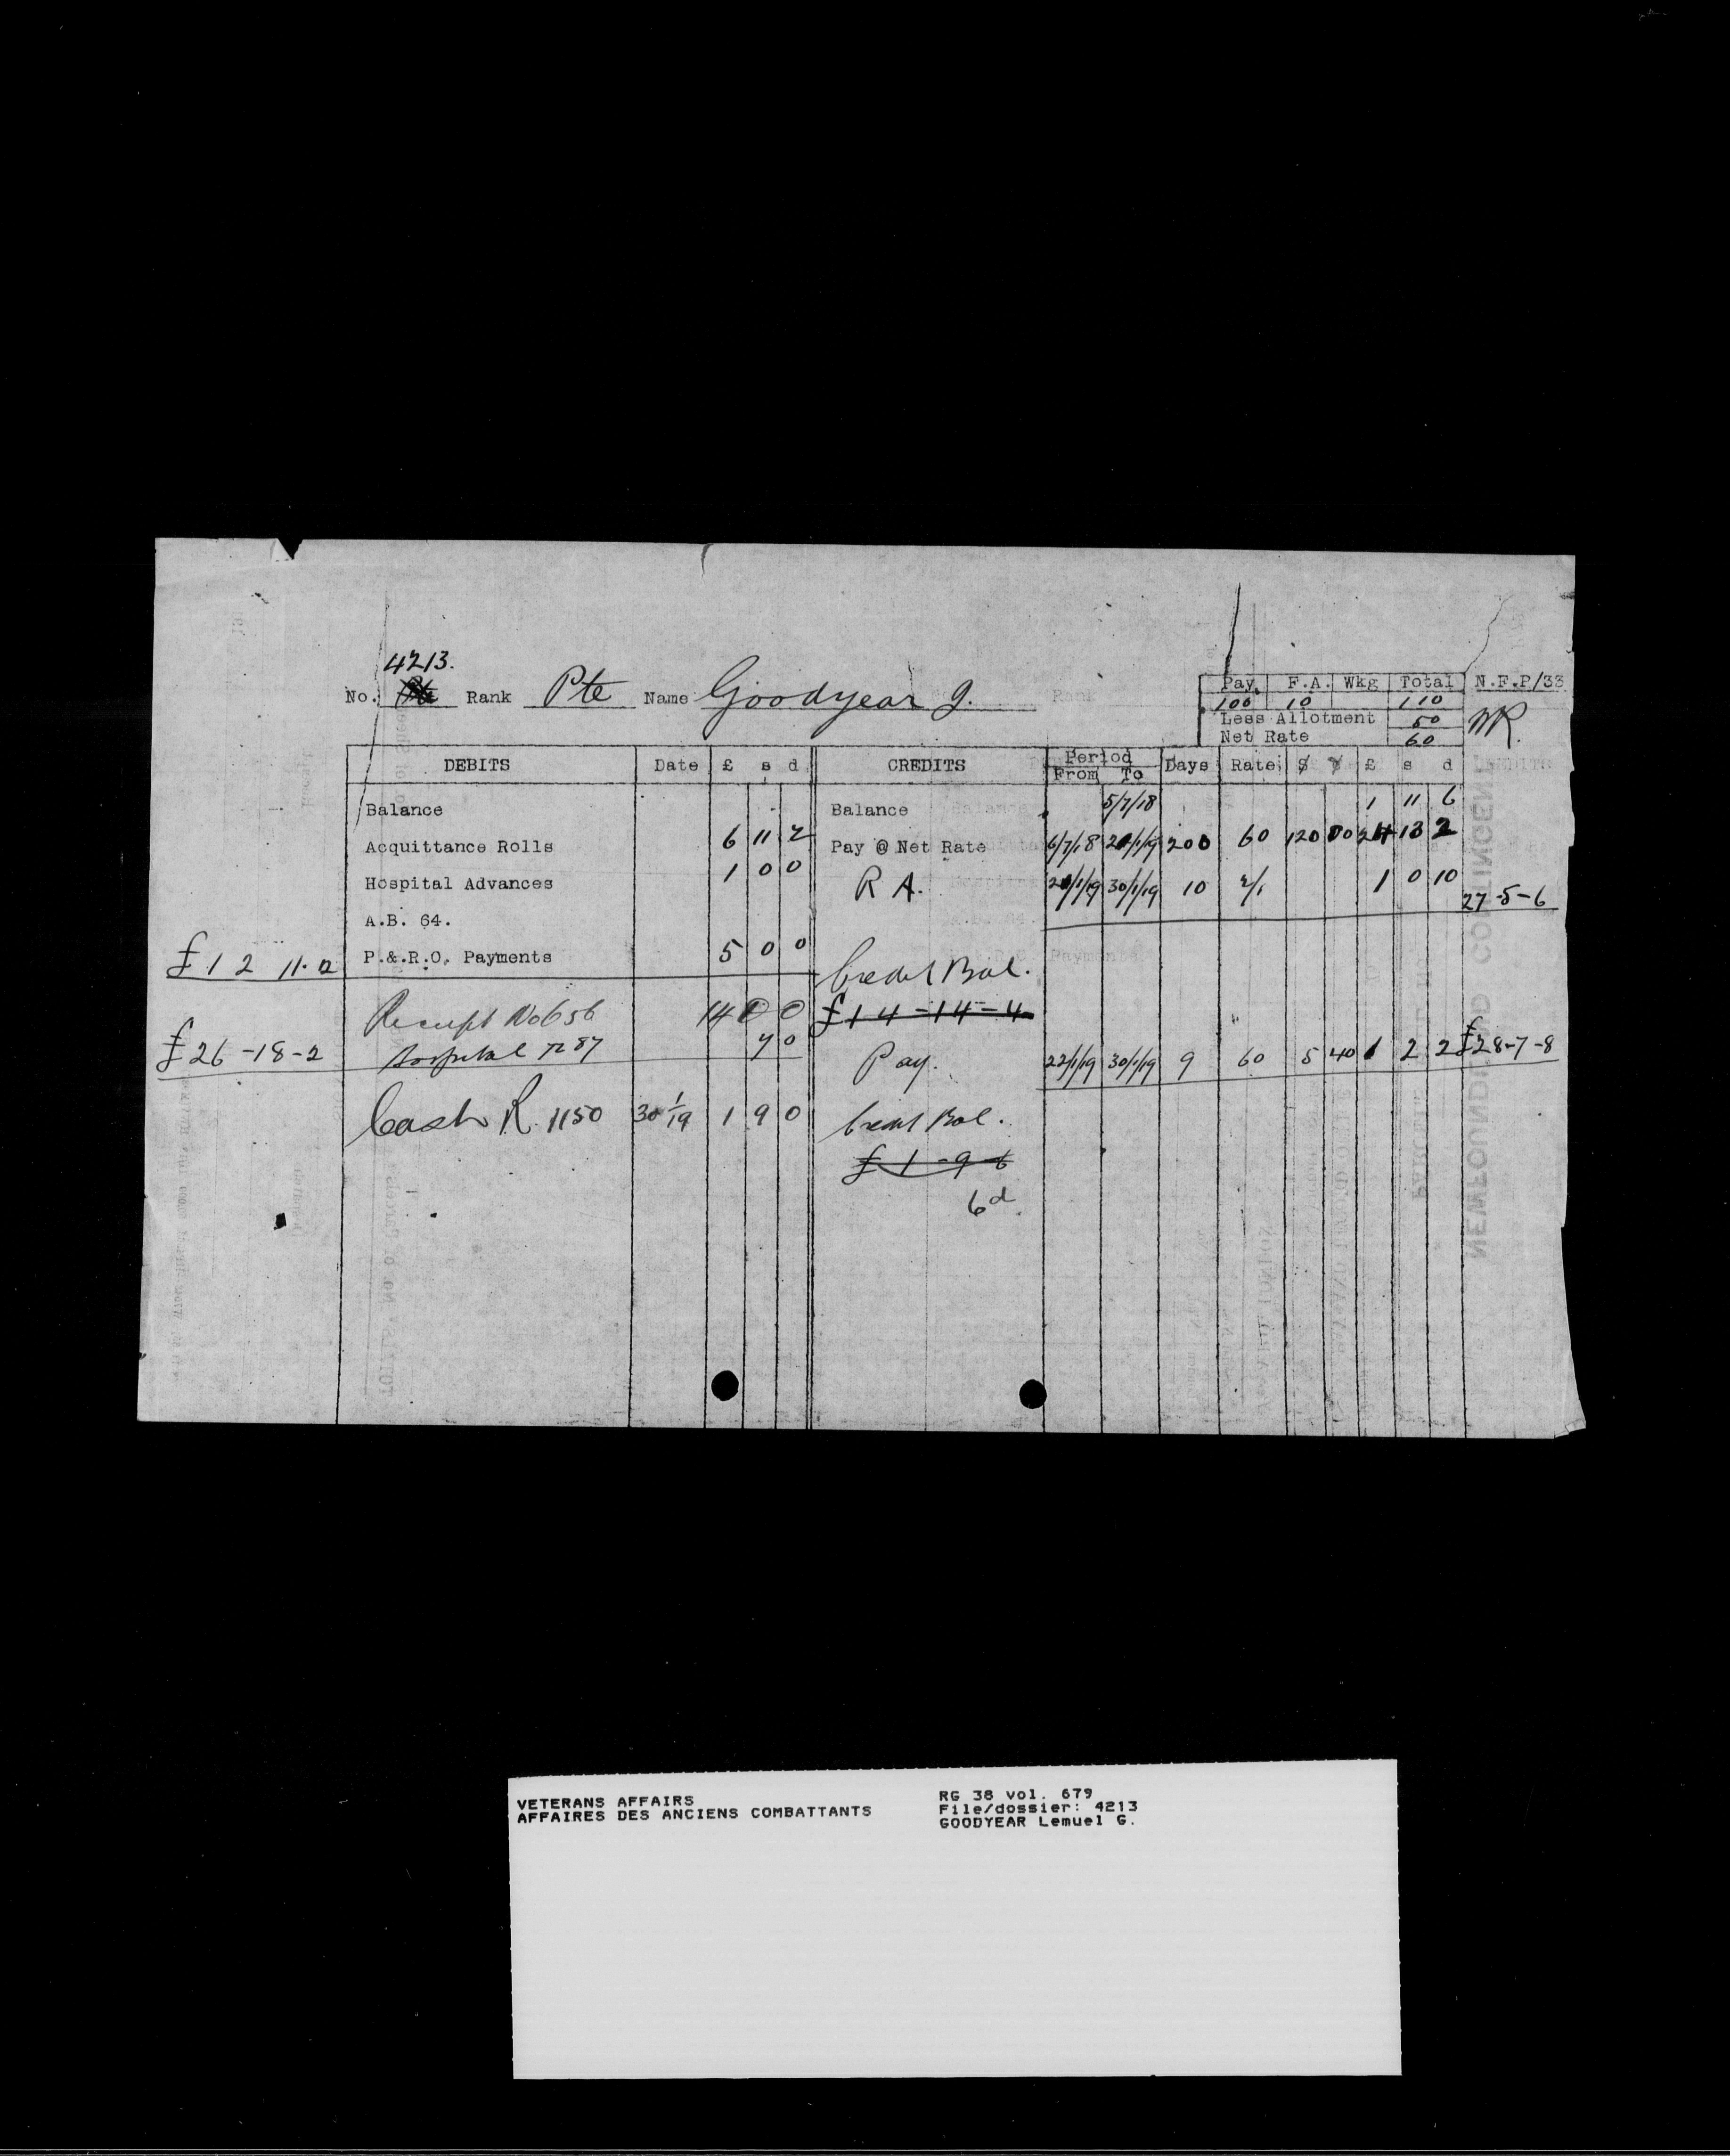 4213.
No. Pte Rank Pte Name Goodyear G.
Pay F.A. Wkg Total N.F.P/33
100 10 110
Less Allotment 50
Net Rate 60
DEBITS Date £ s d CREDITS Period From To Days Rate $ £ s d
Balance Balance 5/7/18 1 11 6
Acquittance Rolls 6 11 2 Pay @ Net Rate 6/7/18 21/1/19 200 60 120 00 24 13 2
Hospital Advances 1 0 0 R A. 21/1/19 30/1/19 10 2/1 1 0 10
27-5-6
A.B. 64.
£12 11.2 P.&.R.O. Payments 5 0 0
Credit Bal.
Receipt No 656 14 0 0 £14-14-4
£26-18-2 Hospital 7 0 Pay. 22/1/19 30/1/19 9 60 5 40 1 2 2 £28-7-8
Cash R. 1150 30 1/19 1 9 0 Credit Bal.
£1-9-6
6d.
NEWFOUNDLAND CONTINGENT
VETERANS AFFAIRS
AFFAIRES DES ANCIENS COMBATTANTS
RG 38 vol. 679
File/dossier: 4213
GOODYEAR Lemuel G.